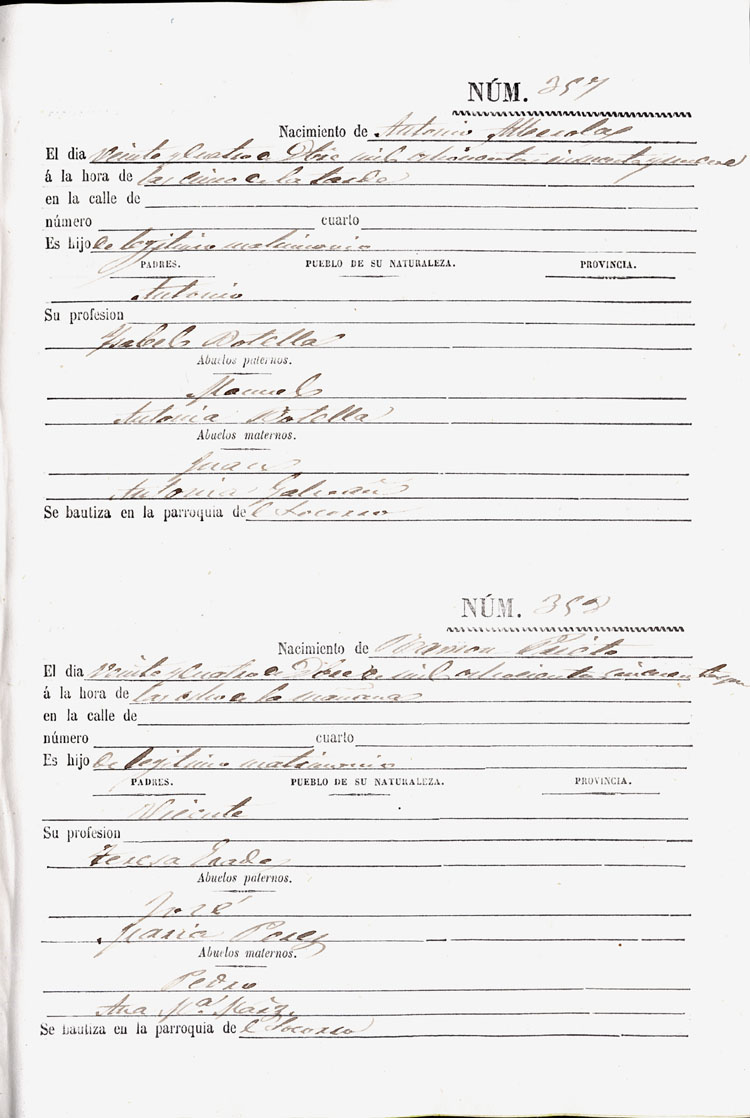 NÚM. 357
Nacimiento de Antonio Alberola
El dia veinte y cuatro de Dbre mil ochocientos cincuenta y
á la hora de las cinco de la tarde
en la calle de
número cuarto
Es hijo de legitimo matrimonio
PADRES. PUEBLO DE SU NATURALEZA. PROVINCIA.
Antonio
Su profesion
Ysabel Botella
Abuelos paternos.
Manuel
Antonia Botella
Abuelos maternos.
Juan
Antonia Galvañ
Se bautiza en la parroquia del Socorro
NÚM. 358
Nacimiento de Ramon Prieto
El dia veinte y cuatro de Dbre de mil ochocientos cincuenta
á la hora de las ocho de la mañana
en la calle de
número cuarto
Es hijo de legitimo matrimonio
PADRES. PUEBLO DE SU NATURALEZA. PROVINCIA.
Vicente
Su profesion
Teresa
Abuelos paternos.
José
Maria Perez
Abuelos maternos.
Pedro
Ana Mª
Se bautiza en la parroquia de l Socorro